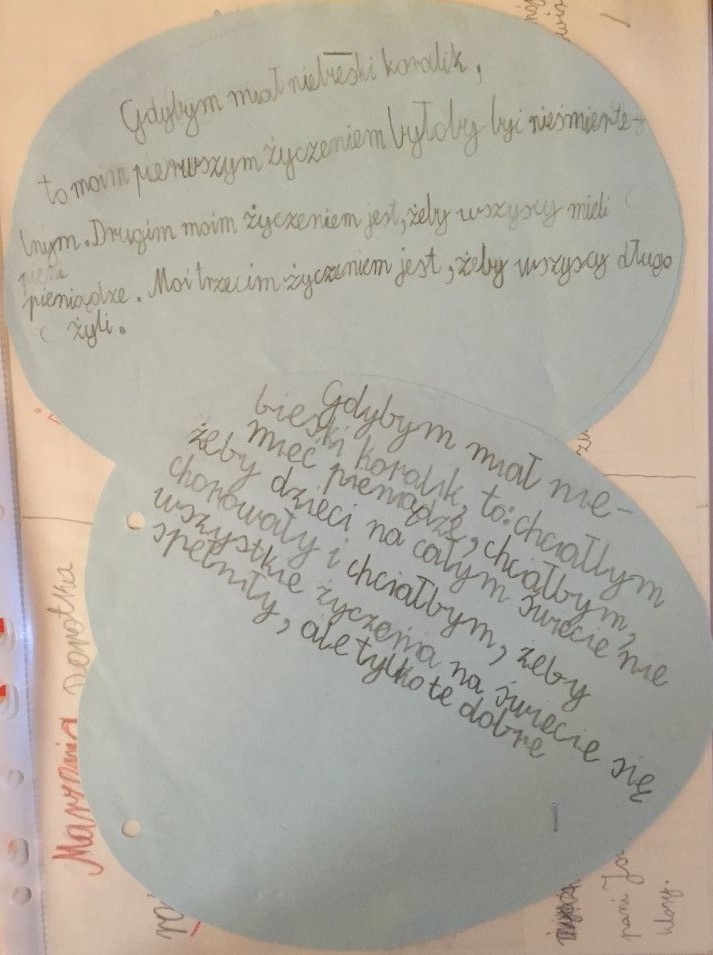 Gdybym miał niebieski koralik,
to moim pierwszym życzeniem byłoby być nieśmierte-
lnym. Drugim moim życzeniem jest, żeby wszyscy mieli
pieniądze. Moi trzecim życzeniem jest, żeby wszyscy długo
żyli.
Gdybym miał nie-
bieski koralik, to: chciałbym
mieć pieniądze, chciałbym,
żeby dzieci na całym świecie nie
chorowały i chciałbym, żeby
wszystkie życzenia na świecie się
spełniły, ale tylko te dobre
Marzenia Dorotka
pani
włosy.